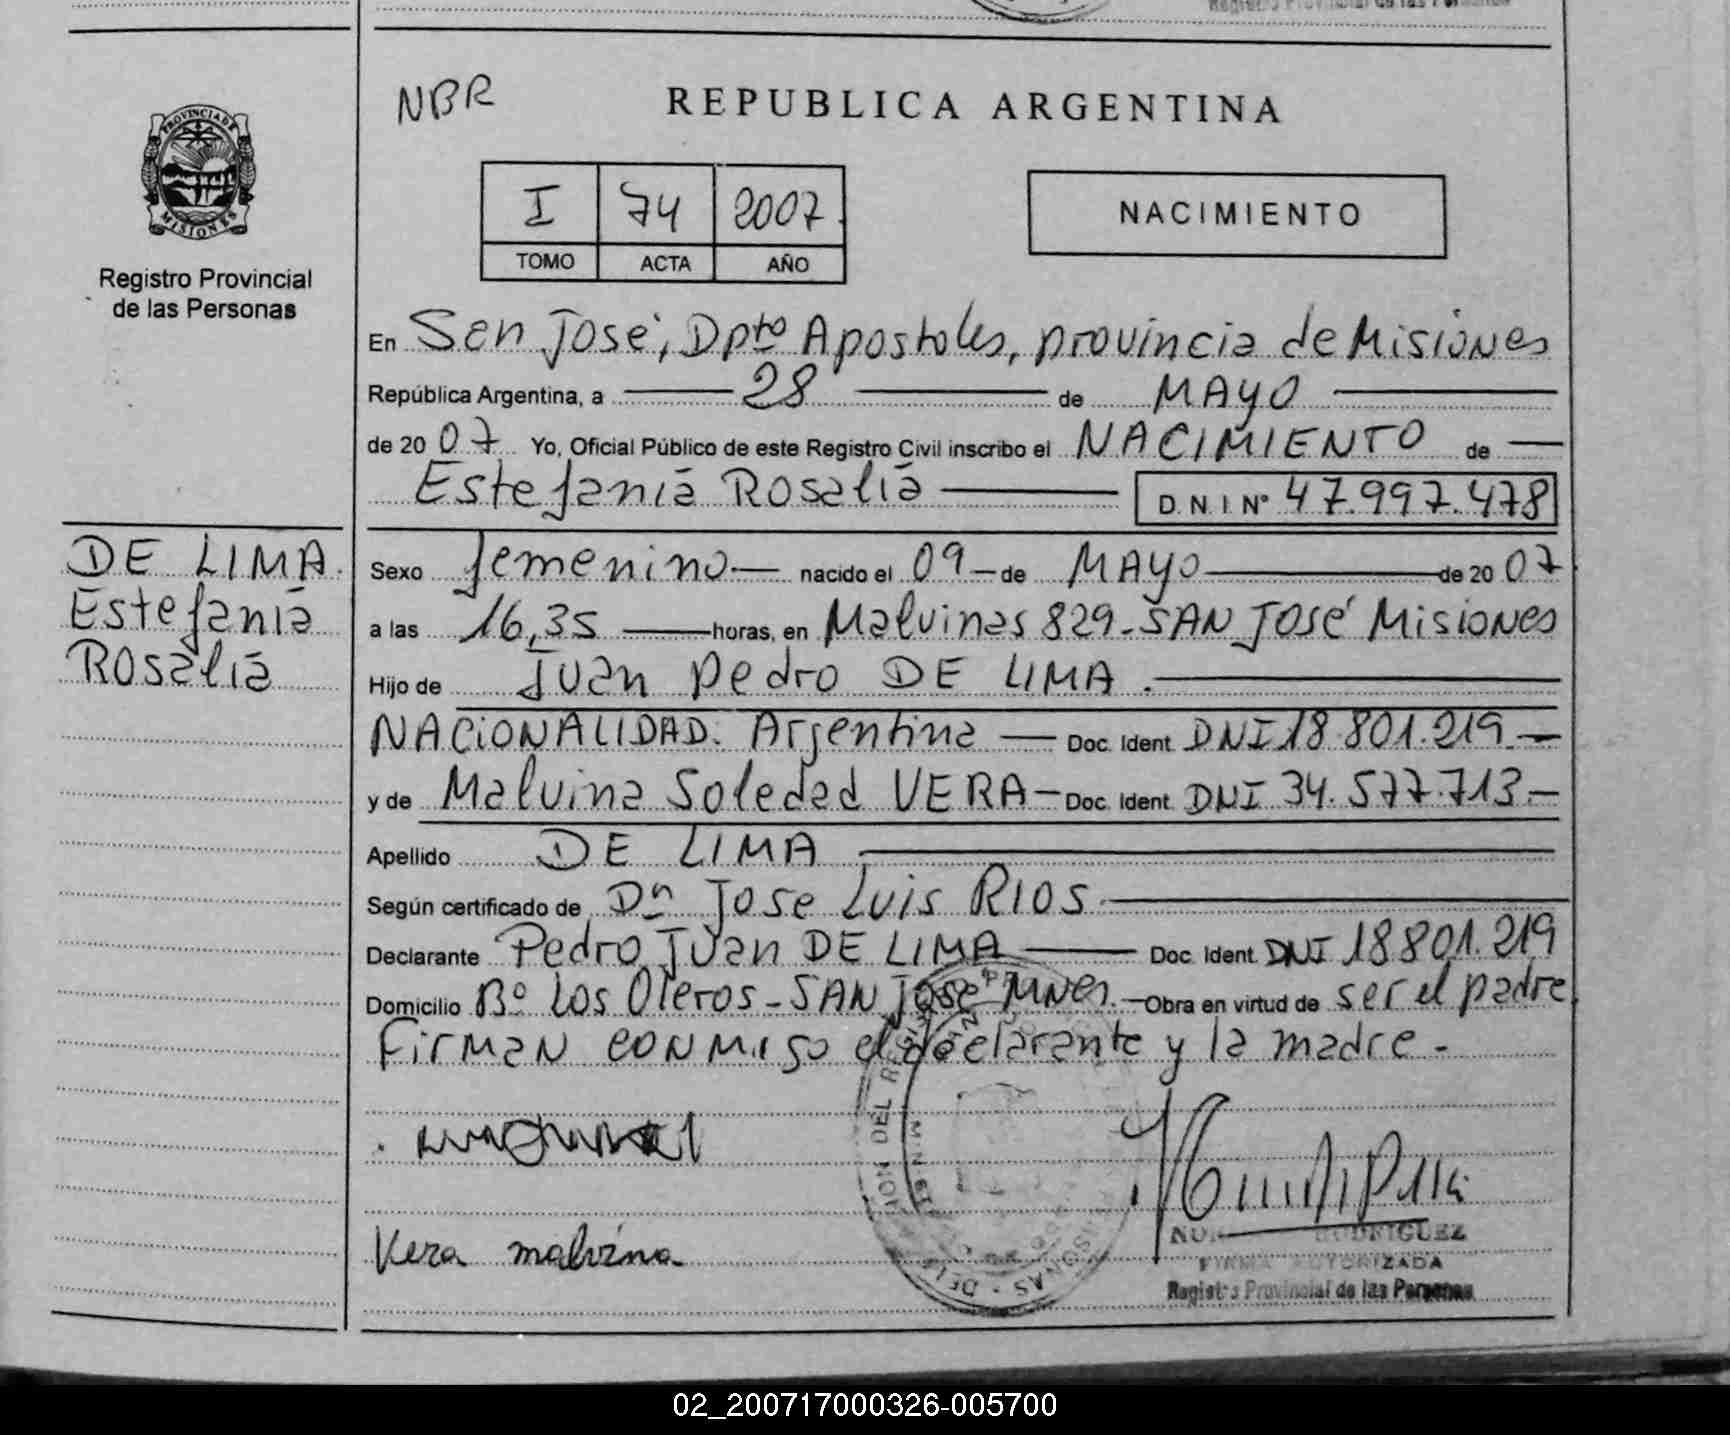 Registro Provincial de las Personas
NBR
REPUBLICA ARGENTINA
PROVINCIA DE
MISIONES
Registro Provincial
de las Personas
I 74 2007
TOMO ACTA AÑO
NACIMIENTO
En San José, Dpto Apostoles, provincia de Misiones
República Argentina, a 28 de MAYO
de 20 07 Yo, Oficial Público de este Registro Civil inscribo el NACIMIENTO de
Estefania Rosalia D.N.I Nº 47.997.478
DE LIMA.
Estefania
Rosalia
Sexo femenino nacido el 09 de MAYO de 20 07
a las 16,35 horas, en Malvinas 829 - SAN José Misiones
Hijo de Juan Pedro DE LIMA.
NACIONALIDAD: Argentina Doc. Ident. DNI 18.801.219
y de Malvina Soledad VERA - Doc. Ident. DNI 34.577.713.-
Apellido DE LIMA
Según certificado de Dn Jose Luis RIOS
Declarante Pedro Juan DE LIMA Doc. Ident. DNI 18801.219
Domicilio Bº Los Oleros - SAN José Mnes. - Obra en virtud de ser el padre
Firman conmigo el declarante y la madre -
Vera malvina
RODRIGUEZ
FIRMA AUTORIZADA
Registro Provincial de las Personas
02_200717000326-005700